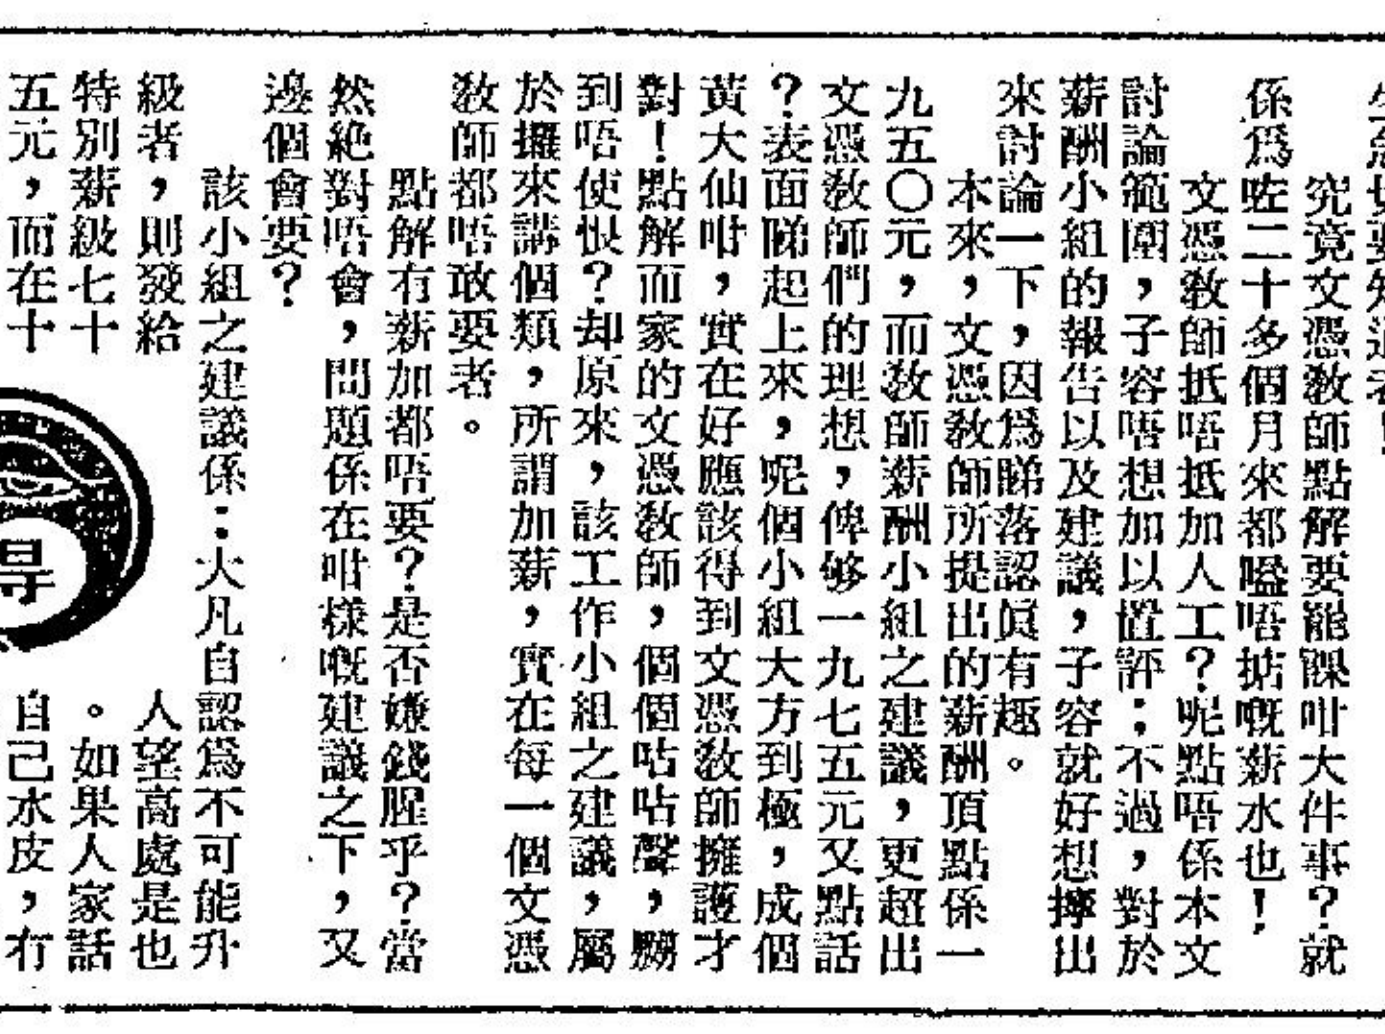 究竟文憑敎師點解要罷課咁大件事？就
係爲咗二十多個月來都嗌唔掂嘅薪水也！
文憑敎師抵唔抵加人工？呢點唔係本文
討論範圍，子容唔想加以置評；不過，對於
薪酬小組的報告以及建議，子容就好想擰出
來討論一下，因爲睇落認眞有趣。
本來，文憑敎師所提出的薪酬頂點係一
九五〇元，而敎師薪酬小組之建議，更超出
文憑敎師們的理想，俾够一九七五元又點話
？表面睇起上來，呢個小組大方到極，成個
黃大仙咁，實在好應該得到文憑敎師擁護才
對！點解而家的文憑敎師，個個咕咕聲，嬲
到唔使恨？却原來，該工作小組之建議，屬
於攞來講個類，所謂加薪，實在每一個文憑
敎師都唔敢要者。
點解有薪加都唔要？是否嫌錢腥乎？當
然絶對唔會，問題係在咁樣嘅建議之下，又
邊個會要？
該小組之建議係：大凡自認爲不可能升
級者，則發給
特別薪級七十
五元，而在十
人望高處是也
。如果人家話
自己水皮，冇